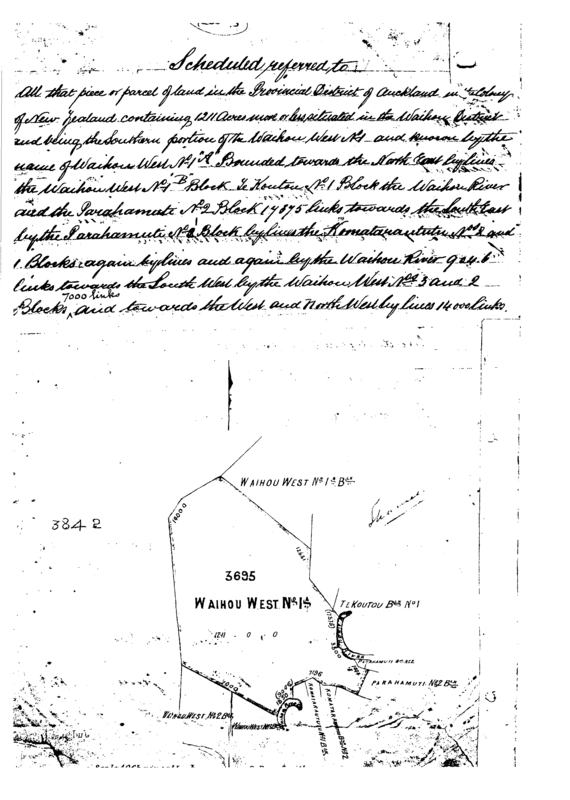 Scheduled referred to.
All that piece or parcel of land in the Provincial District of Auckland in Colony
of New Zealand containing 1211 Acres more or less situated in the Waihou District
and being the Southern portion of the Waihou West No 1 and known by the
name of Waihou West No 1 "A" Bounded towards the North East by lines
the Waihou West No 1 B Block Te Koutou No 1 Block the Waihou River
and the Parahamuti No 2 Block 17875 links towards the South East
by the Parahamuti No 2 Block by lines the Komataraututu Nos 2 and
1 Blocks again by lines and again by the Waihou River 9246
links towards the South West by the Waihou West Nos 3 and 2
Blocks 7000 links and towards the West and North West by lines 14000 links.
WAIHOU WEST No 1 B Bck
3842
14000
3695
WAIHOU WEST No 1 A
TE KOUTOU Bck No 1
1211 - 0 - 0
3500
PARAHAMUTI No 2 Bck
7000
WAIHOU WEST No 2 Bck